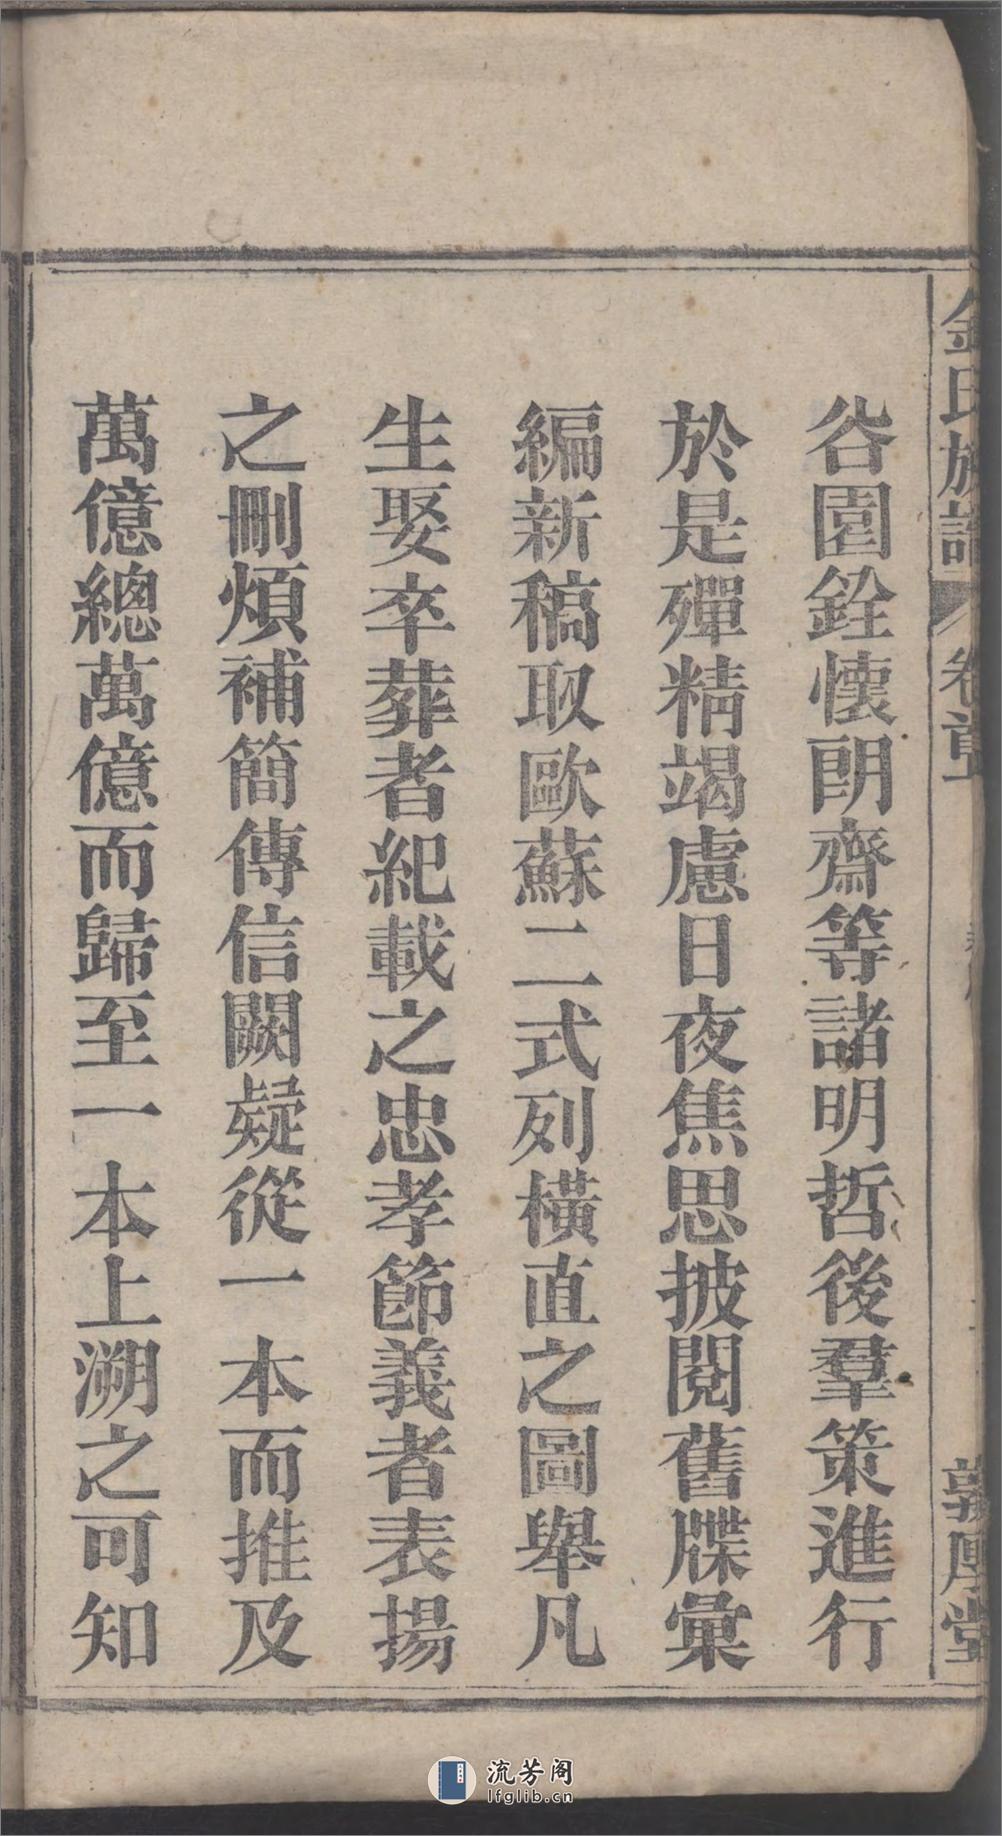 金氏族譜 卷首 敦厚堂
峕園銓懷朗齋等諸明哲後羣策進行
於是殫精竭慮日夜焦思披閱舊牒彙
編新稿取歐蘇二式列橫直之圖舉凡
生娶卒葬者紀載之忠孝節義者表揚
之刪煩補簡傳信闕疑從一本而推及
萬億總萬億而歸至一本上溯之可知
流芳阁
lfglib.cn